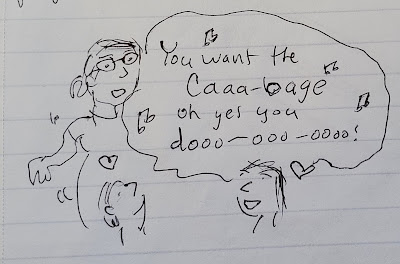 You want the
Caaa-bage
oh yes you
dooo-ooo-oooo!